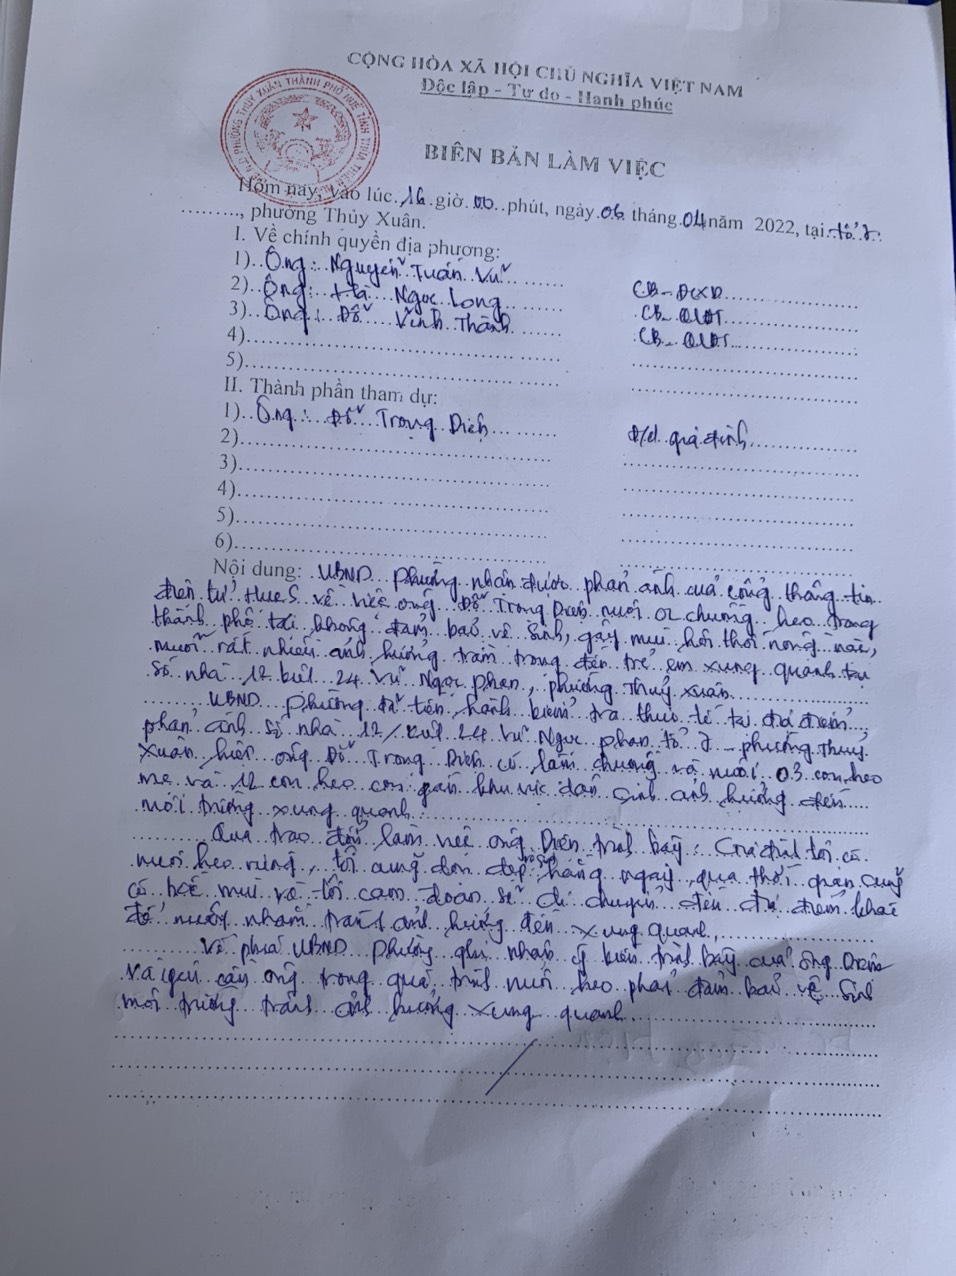 CỘNG HÒA XÃ HỘI CHỦ NGHĨA VIỆT NAM
Độc lập - Tự do - Hạnh phúc
BIÊN BẢN LÀM VIỆC
Hôm nay, vào lúc 16 giờ 00 phút, ngày 06 tháng 04 năm 2022, tại tổ 7
, phường Thủy Xuân.
I. Về chính quyền địa phương:
1) Ông: Nguyễn Tuấn Vũ CB-ĐCXD
2) Ông: Hà Ngọc Long CB-QLĐT
3) Ông: Đỗ Vĩnh Thành CB-QLĐT
4)
5)
II. Thành phần tham dự:
1) Ông: Đỗ Trọng Diên đ/d gia đình
2)
3)
4)
5)
6)
Nội dung: UBND phường nhận được phản ánh của cổng thông tin
điện tử Hue S về việc ông Đỗ Trọng Diên nuôi 02 chuồng heo trong
thành phố tại không đảm bảo vệ sinh, gây mùi hôi thối nồng nặc,
muỗi rất nhiều ảnh hưởng trầm trọng đến trẻ em xung quanh tại
số nhà 12 kiệt 24 Vũ Ngọc Phan, phường Thuỷ Xuân.
UBND phường đã tiến hành kiểm tra thực tế tại địa điểm
phản ánh số nhà 12/kiệt 24 Vũ Ngọc Phan tổ 7 - phường Thuỷ
Xuân hiện ông Đỗ Trọng Diên có làm chuồng và nuôi 03 con heo
mẹ và 12 con heo con gần khu vực dân sinh ảnh hưởng đến
môi trường xung quanh.
Qua trao đổi làm việc ông Diên trình bày: Gia đình tôi có
nuôi heo rừng, tôi cũng dọn dẹp hằng ngày, qua thời gian cũng
có mùi và tôi cam đoan sẽ di chuyển đến địa điểm khác
để nuôi nhằm tránh ảnh hưởng đến xung quanh.
Về phía UBND phường ghi nhận ý kiến trình bày của ông Diên
và yêu cầu ông trong quá trình nuôi heo phải đảm bảo vệ sinh
môi trường tránh ảnh hưởng xung quanh.